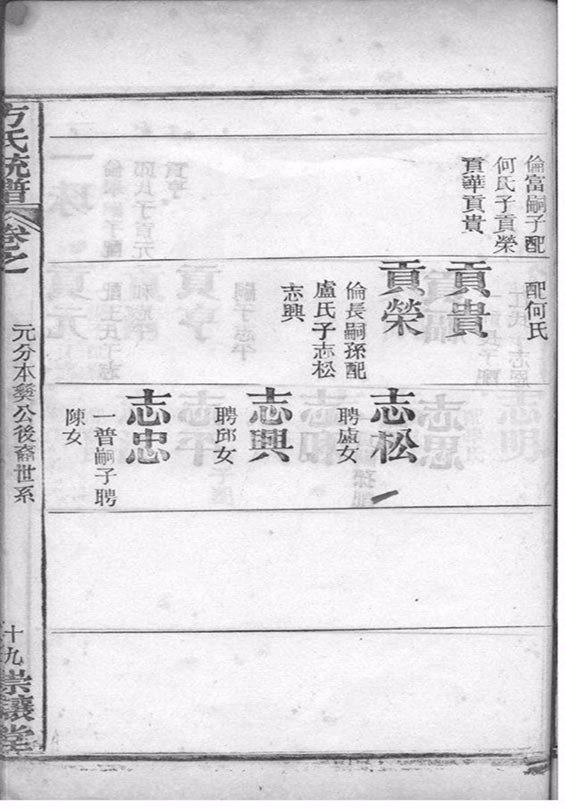 倫富嗣子配
何氏子貢榮
貢華貢貴
配何氏
貢貴
貢榮
倫長嗣孫配
盧氏子志松
志興
志松
聘盧女
志興
聘邱女
志忠
一普嗣子聘
陳女
方氏統譜
卷之
元分本奬公後裔世系
十九
崇讓堂